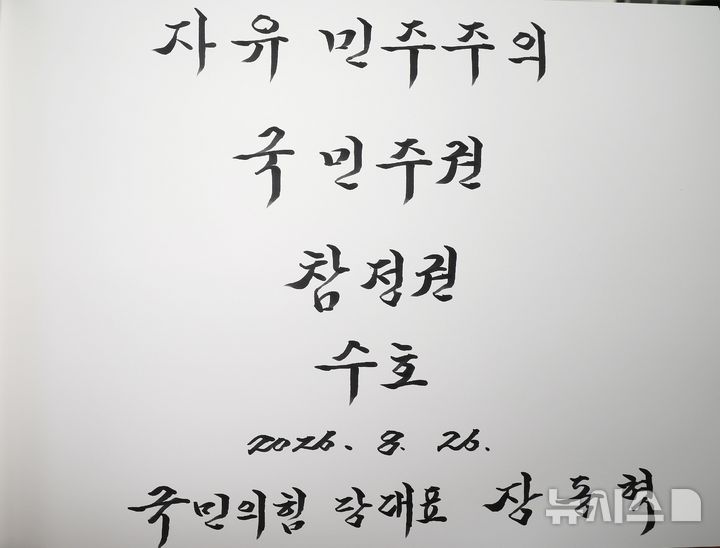 자유 민주주의
국민주권
참정권
수호
2026. 8. 26.
국민의힘 당대표 장동혁
뉴시스